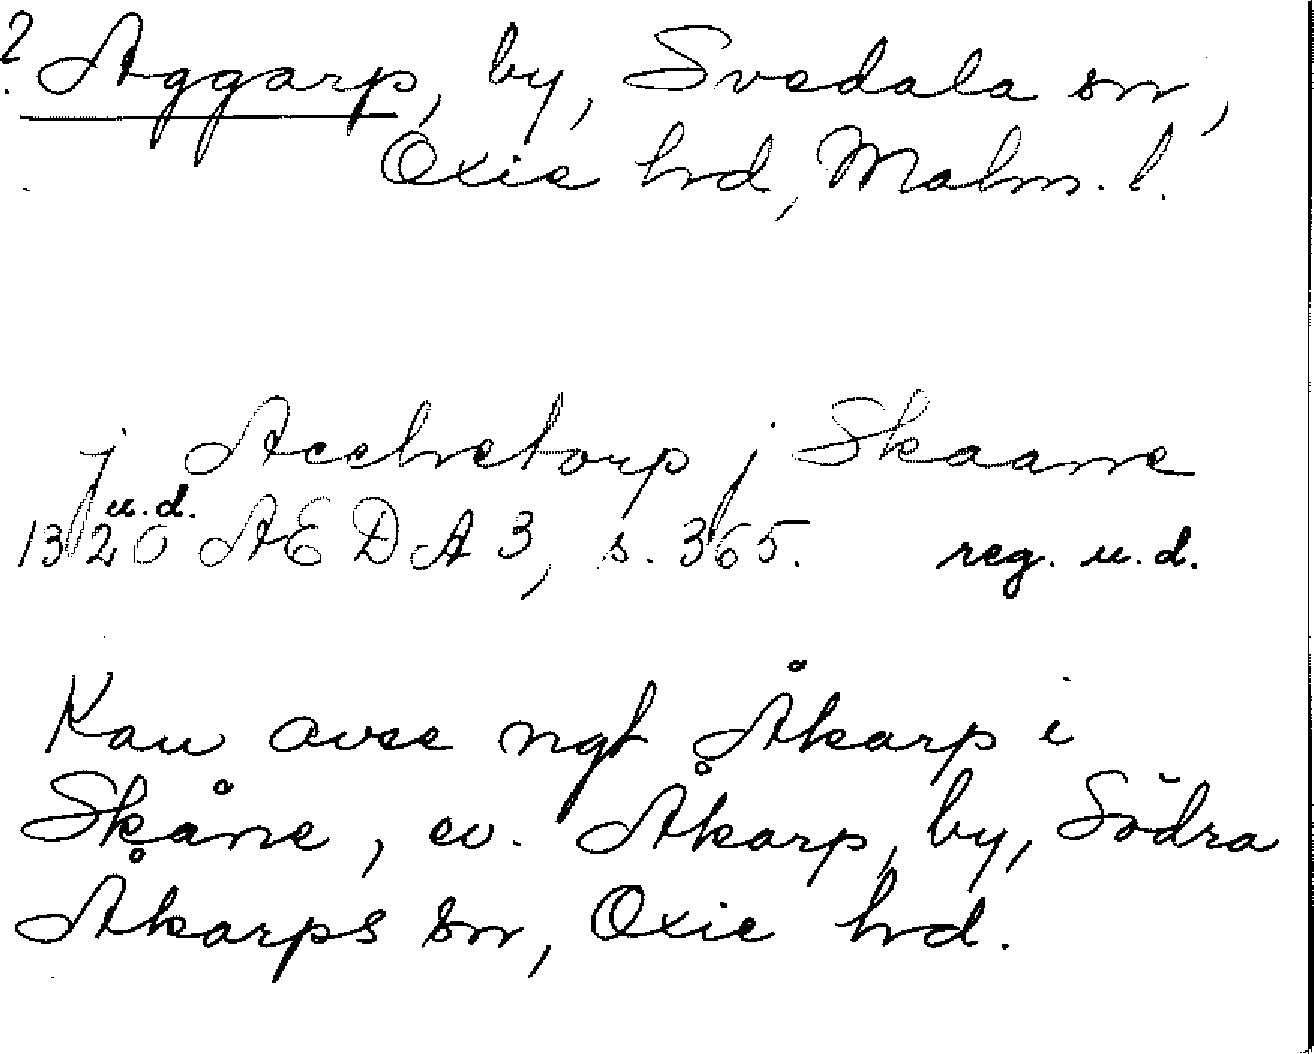 ? Aggarp, by, Svedala sn,
Oxie hrd, Malm. l.
j Acehetorp j Skaane
u.d.
1320 AEDA 3, s. 365. reg. u.d.
Kan avse ngt Åkarp i
Skåne, ev. Åkarp, by, Södra
Åkarps sn, Oxie hrd.